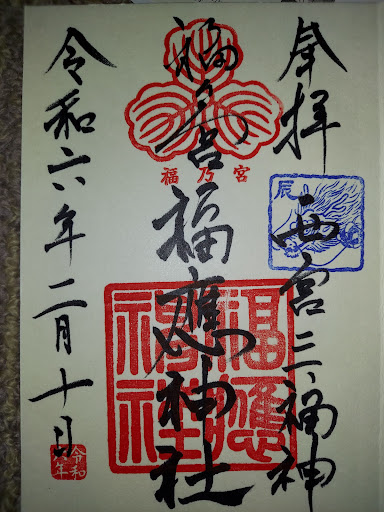 奉拝
西宮三福神
辰
福乃宮
福應神社
福應神社
令和六年二月十日
令和六年